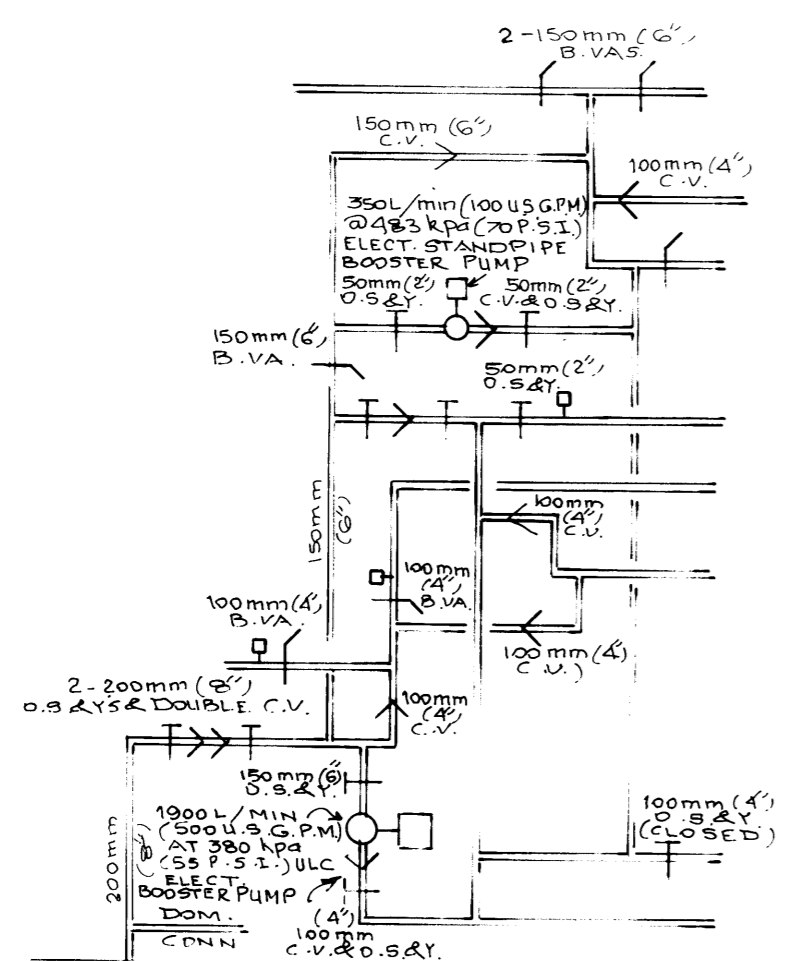 2-150mm (6")
B.VAS.
150mm (6")
C.V.
100mm (4")
C.V.
350L/min (100 U.S G.P.M)
@ 483 kpa (70 P.S.I.)
ELECT. STANDPIPE
BOOSTER PUMP
50mm (2")
O.S &Y.
50mm (2")
C.V.& O.S &Y.
150mm (6")
B.VA.
50mm (2")
O.S &Y.
150mm
(6")
100mm
(4")
C.V.
100mm
(4")
B.VA.
100mm (4")
B.VA.
100mm (4")
C.V.)
2-200mm (8")
O.S &Y'S & DOUBLE C.V.
100mm
(4")
C.V.
150mm (6")
O.S.&Y.
1900 L/MIN
(500 U.S.G.P.M.)
AT 380 kpa
(55 P.S.I.) ULC
ELECT.
BOOSTER PUMP
200mm
(8")
100mm (4")
O.S &Y.
(CLOSED)
DOM.
CONN
(4")
100mm
C.V.& O.S.&Y.